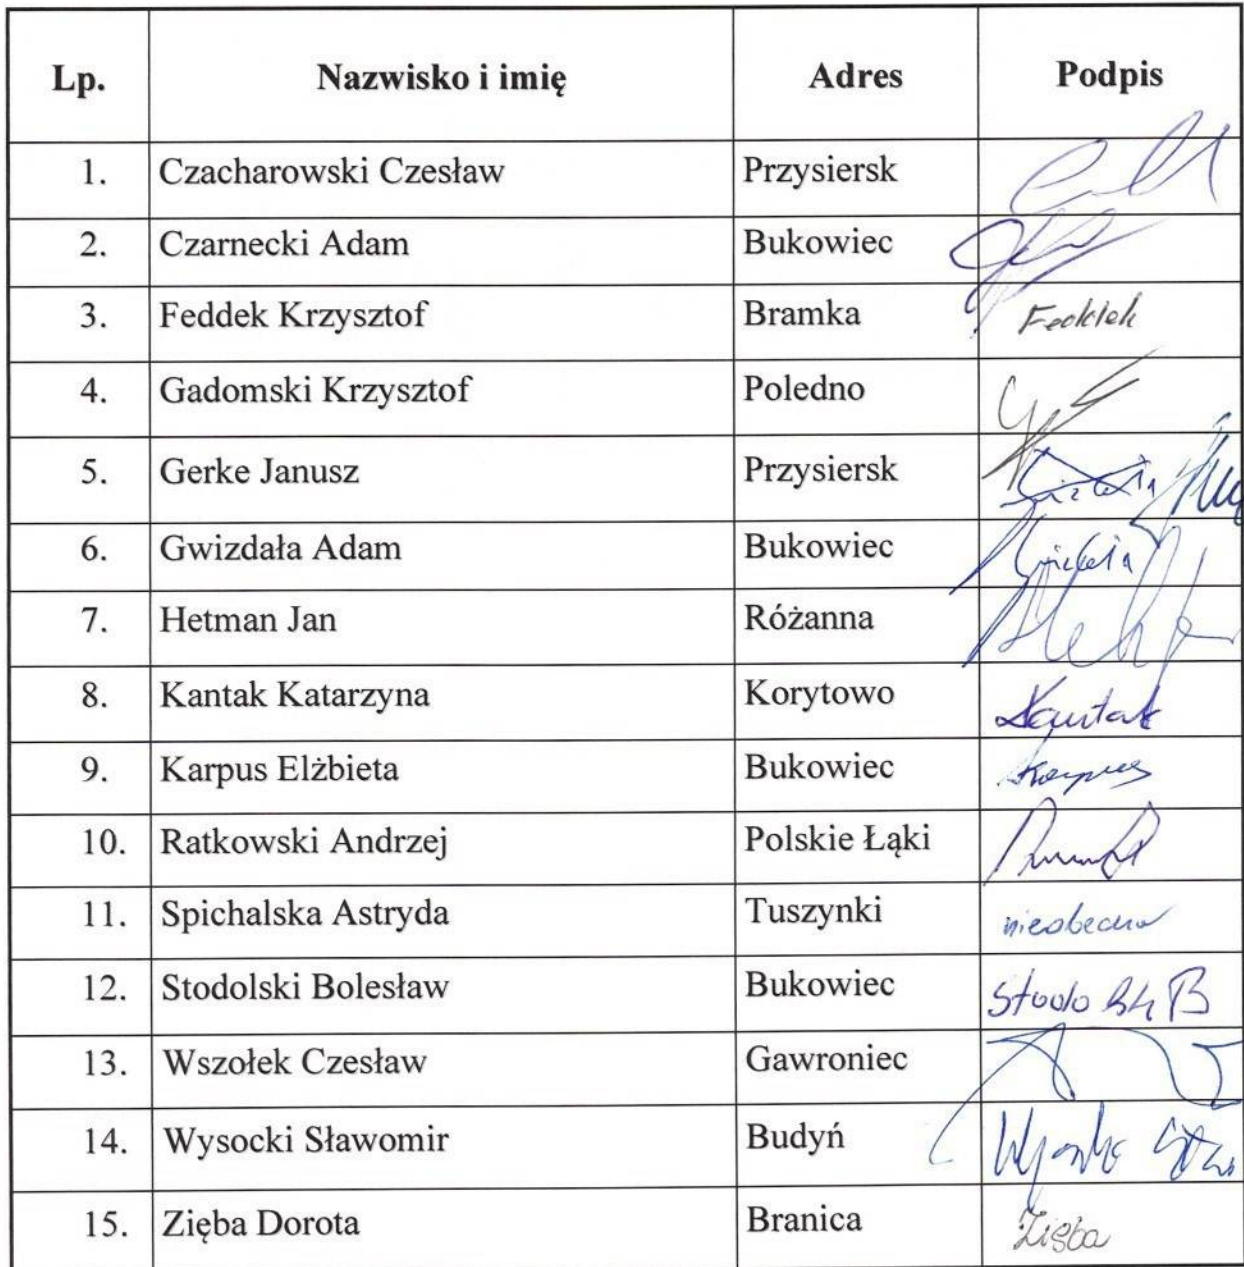 Lp. Nazwisko i imię Adres Podpis
1. Czacharowski Czesław Przysiersk
2. Czarnecki Adam Bukowiec
3. Feddek Krzysztof Bramka Feddek
4. Gadomski Krzysztof Poledno
5. Gerke Janusz Przysiersk
6. Gwizdała Adam Bukowiec
7. Hetman Jan Różanna
8. Kantak Katarzyna Korytowo Kantak
9. Karpus Elżbieta Bukowiec Karpus
10. Ratkowski Andrzej Polskie Łąki
11. Spichalska Astryda Tuszynki nieobecna
12. Stodolski Bolesław Bukowiec
13. Wszołek Czesław Gawroniec
14. Wysocki Sławomir Budyń
15. Zięba Dorota Branica Zięba